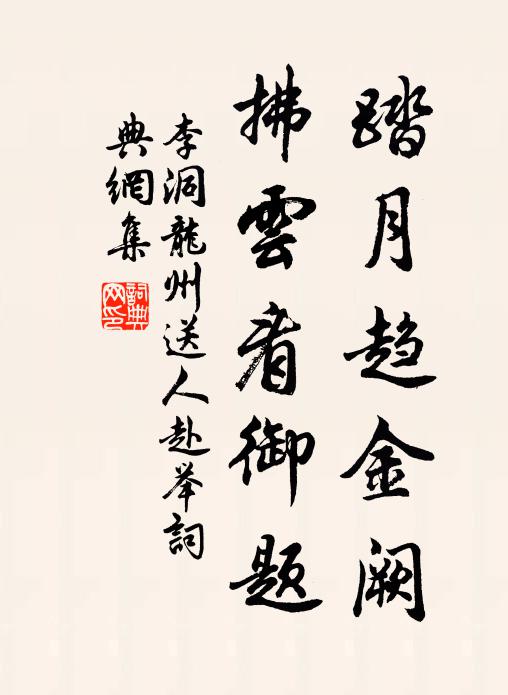 踏月趋金阙
拂雲看御题
李洞龍州送人赴举詞
典網集
詞典网印